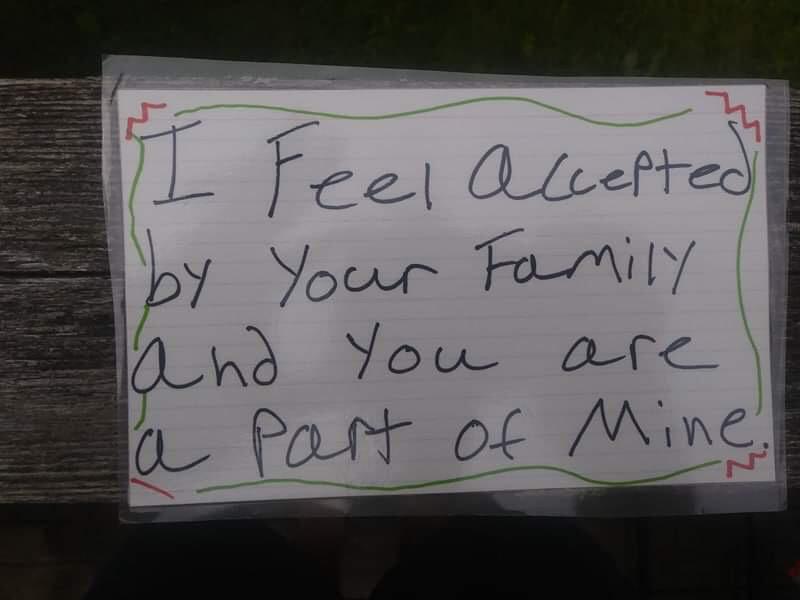 I Feel Accepted
by Your Family
and You are
a Part of Mine.